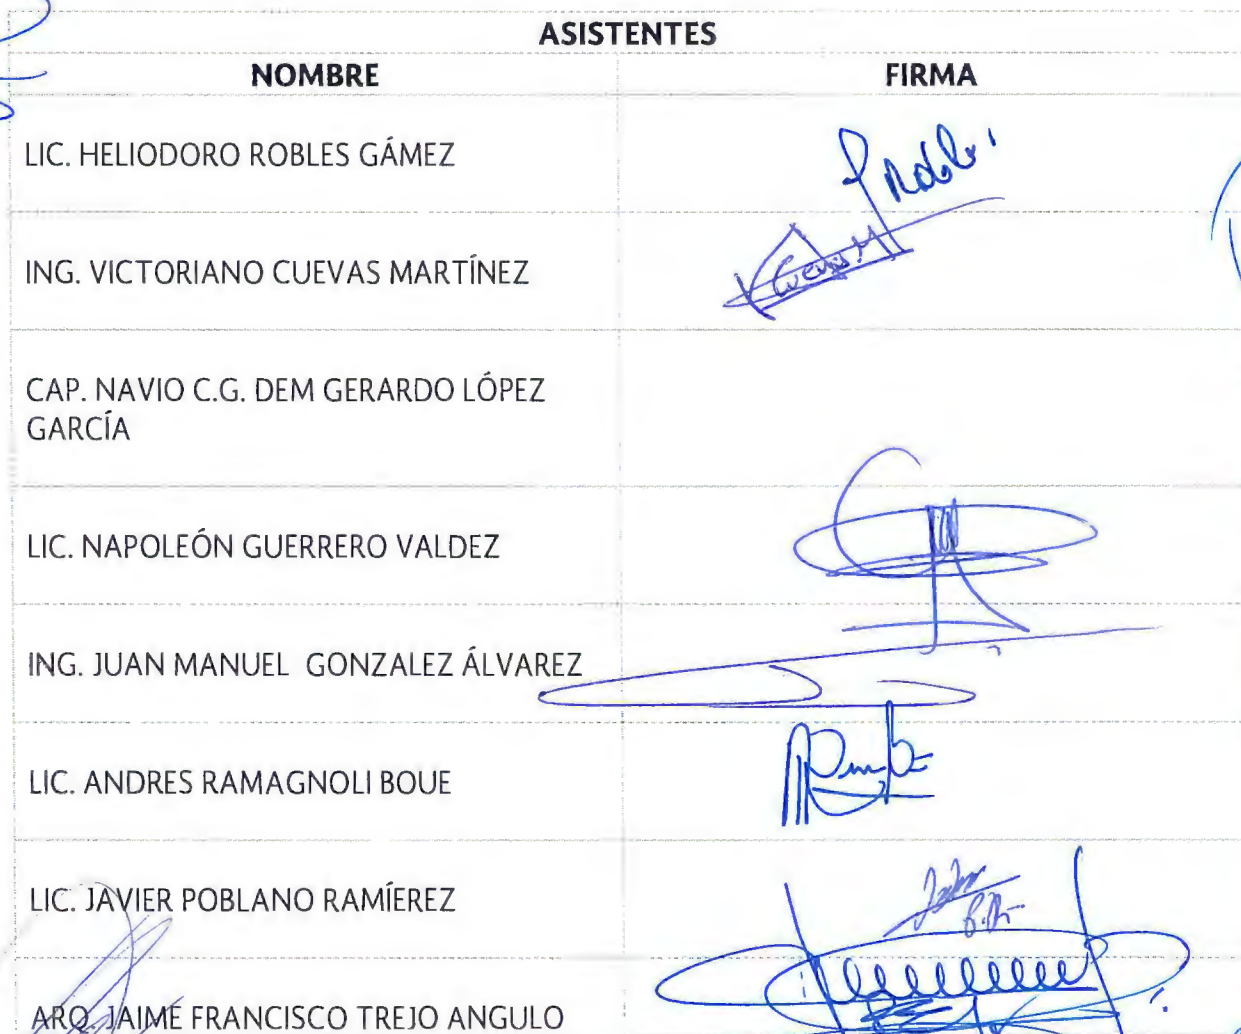 ASISTENTES
NOMBRE FIRMA
LIC. HELIODORO ROBLES GÁMEZ
ING. VICTORIANO CUEVAS MARTÍNEZ
CAP. NAVIO C.G. DEM GERARDO LÓPEZ
GARCÍA
LIC. NAPOLEÓN GUERRERO VALDEZ
ING. JUAN MANUEL GONZALEZ ÁLVAREZ
LIC. ANDRES RAMAGNOLI BOUE
LIC. JAVIER POBLANO RAMÍEREZ
ARQ. JAIME FRANCISCO TREJO ANGULO